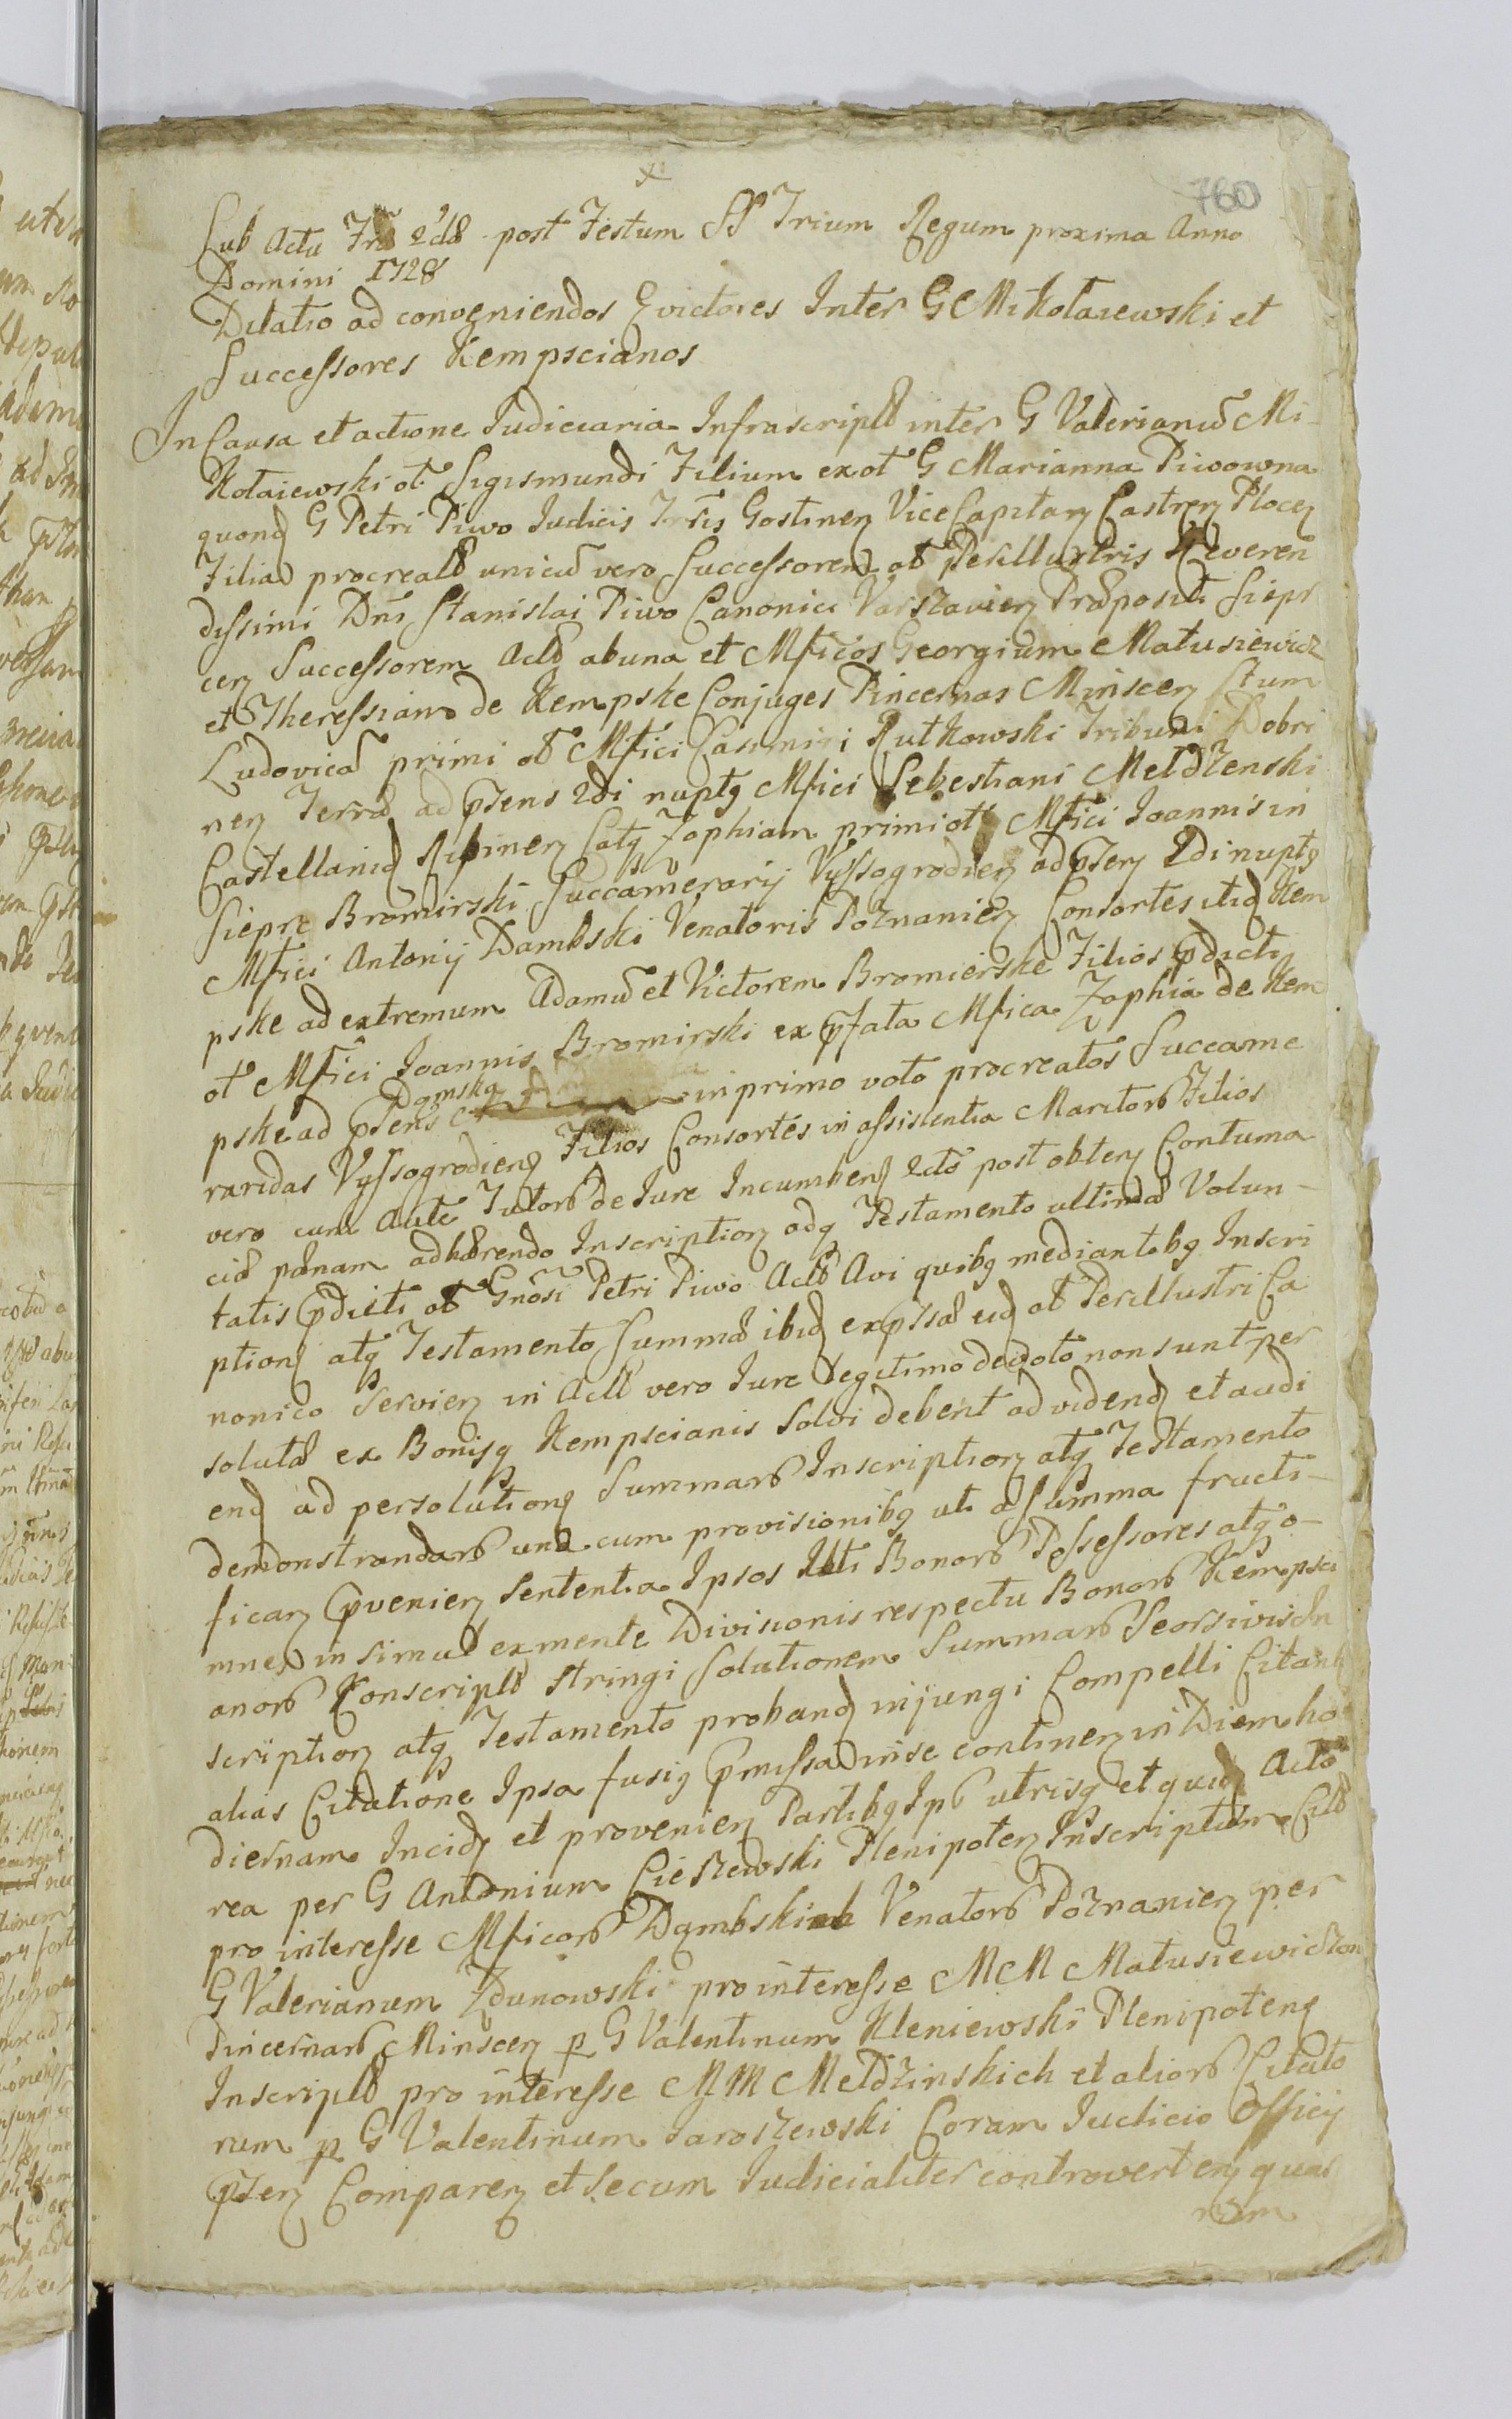 760
Sub Actu Fria 2da post Festum SS Trium Regum proxima Anno
Domini 1728
Dilatio ad conveniendos Evictores Inter G Mikołaiewski et
Successores Kempscianos
In Causa et actione Judiciaria Infrascripta inter G Valerianũ Mi-
kołaiewski ol Sigismundi Filium ex ol G Marianna Piwowna
quond G Petri Piwo Judicis Trris Gostinen Vice Capitan Castren Plocen
Filia procreatũ unicũ vero Successorem ol Perillustris Reveren
dissimi Dni Stanislai Piwo Canonici Varszavien Præpositi Siepr
cen Successorem Actorem ab una et Mficos Georgium Matusiewicz
et Theressiam de Kempske Conjuges Pincernas Minscen Itum
Ludovicã primi ol Mfici Casimiri Rutkowski Tribuni Dobri
nen Terræ ad præsens 2di nuptą Mfici Sebestiani Mełdzenski
Castellanid Ripinen Cątą Zophiam primi ol Mfici Joannis in
Siepre Bromirski Succamerarij Vyssogrodien ad præsen 2di nuptą
Mfici Antonij Dambski Venatoris Poznanien Consortes itid Kem
pske ad extremum Adamũ et Victorem Bromierske Filios pdicti
ol Mfici Joannis Bromirski ex pfata Mfica Zophia de Kem
pske ad psens Dąmską in primo voto procreatos Succame
raridas Vyssogrodien Filios Consortes in assistentia Maritorũ Filios
vero cum Autte Tutorũ de Jure Incumben 2cto post obten Contuma
ciæ pænam adhærendo Inscription adq Testamento ultimæ Volun-
tatis pdicti ol Gnosi Petri Piwo Actoris Avi quibq mediantibq Inscri
ption atq Testamento Summæ ibid expssæ eid ol Perillustri Ca
nonico Servien in Actorem vero Jure Legitimo devoto non sunt per
solutæ ex Bonisq Kempscianis solvi debent ad videnđ et audi
end ad persolutionę Summarũ Inscription atq Testamento
demonstrandarũ una cum provisionibq uti a Summa fructi-
fican pvenien Sententia Ipsos Uti Bonorũ Possessores atq o-
mnes in simul ex mente Divisionis respectu Bonorũ Kempsci
anorũ Conscriptæ stringi Solutionem Summarũ Seorsivis In
scription atq Testamento proband injungi Compelli Citant
alias Citatione Ipsa fusiq pmissa in se continen in Diem ho
diernam Incid et provenien Partibq Ipũ utrisq et quid Acto
rea per G Antonium Cieszewski Plenipoten Inscriptum Citta
pro interesse Mficorũ Dąmbskich Venatorũ Poznanien per
G Valerianum Zdunowski pro interesse MM Matusiewiczon
Pincernarũ Minscen p G Valentinum Kleniewski Plenipoteng
Inscriptũ pro interesse MM Mełdzinskich et aliorũ Citato
rum p G Valentinum Jaroszewski Coram Judicio Officij
psen Comparen et secum Judicialiter controverten qua
rum